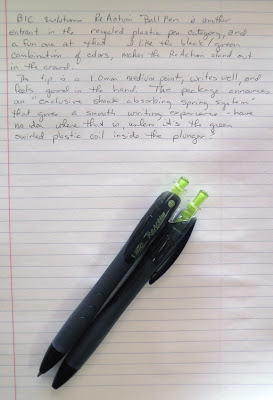 BIC Evolutions ReAction Ball Pen is another
entrant in the recycled plastic pen category, and
a fun one at that. I like the black/green
combination of colors, makes the ReAction stand out
in the crowd.
The tip is a 1.0mm medium point, writes well, and
feels good in the hand. The package announces
an "exclusive shock absorbing spring system"
that gives a smooth writing experience - have
no idea where that is, unless it's the green
swirled plastic coil inside the plunger?
ReAction